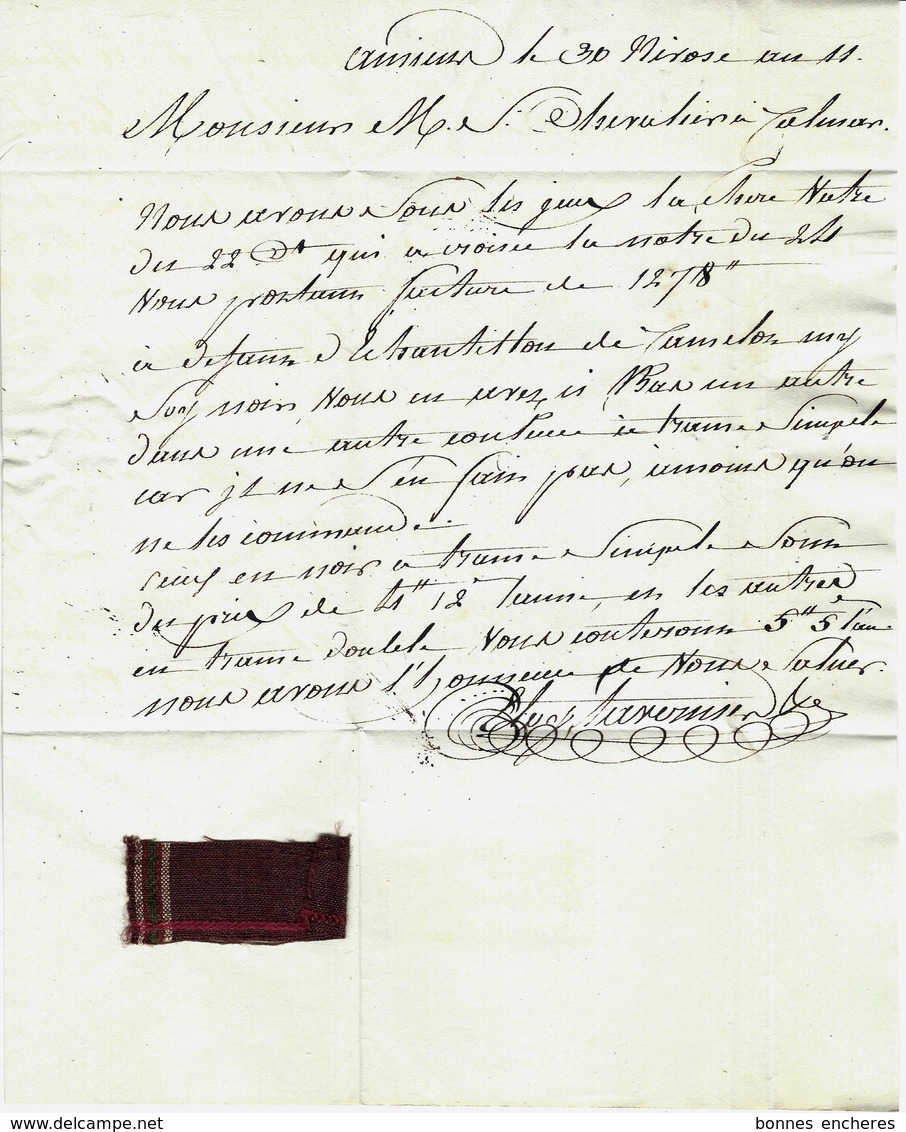 amiens le 30 Nivose an 11.
Monsieur M. S. Chevalier a Colmar.
Nous avons Sous les yeux la Chere Votre
du 22 Dt qui a croisée la notre du 24
Vous portant facture de 1278"
a defaux d'Echantillon de Camelot my
Soy noir, Vous en avez ci Bas un autre
dans une autre couleur a trame Simple
car je ne S'en fain pas, a moins qu'on
ne les commande.
ceux en noir a trame Simple Sonn
du prix de 4" 12 launne, en les autres
en trame double Vous couterons 5" 5 l'aune
nous avons l'honneur de Vous Saluer
bonnes encheres